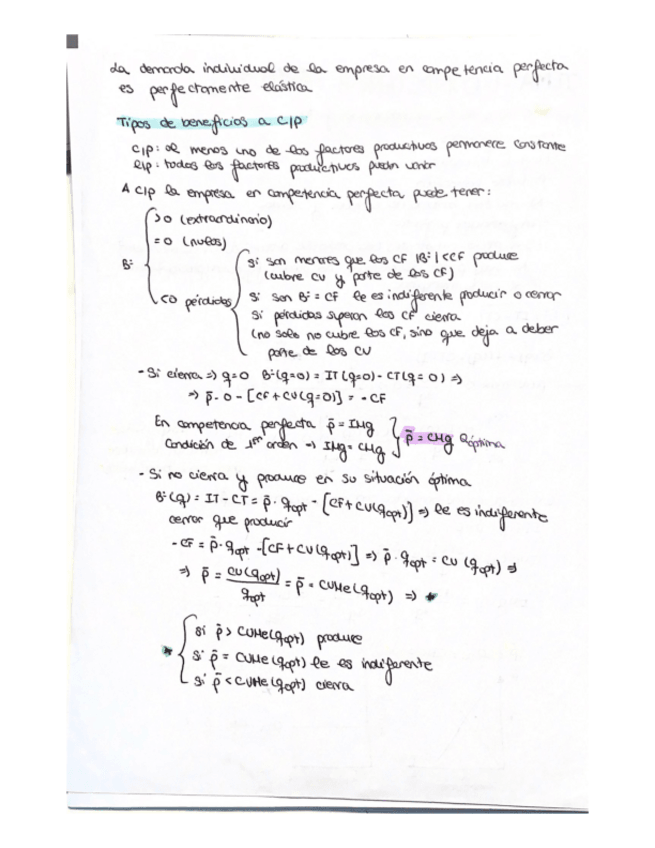 La demanda individual de la empresa en competencia perfecta
es perfectamente elástica
Tipos de beneficios a C/P
C/P: al menos uno de los factores productivos permanece constante
L/P: todos los factores productivos pueden variar
A C/P la empresa en competencia perfecta puede tener:
Bº
>0 (extraordinario)
=0 (nulos)
<0 pérdidas
Si son menores que los CF |Bº|<CF produce
(cubre CV y parte de los CF)
Si son Bº = CF le es indiferente producir o cerrar
Si pérdidas superan los CF cierra
(no solo no cubre los CF, sino que deja a deber
parte de los CV
- Si cierra => q=0 Bº(q=0) = IT(q=0) - CT(q=0) =>
=> p̄·0 - [CF + CV(q=0)] = -CF
En competencia perfecta p̄ = IMg
Condición de 1er orden → IMg = CMg
p̄ = CMg Qóptima
- Si no cierra y produce en su situación óptima
Bº(q) = IT - CT = p̄·qopt - [CF + CV(qopt)] => le es indiferente
cerrar que producir
-CF = p̄·qopt - [CF + CV(qopt)] => p̄·qopt = CV(qopt) =>
=> p̄ = CV(qopt)/qopt = p̄ = CVMe(qopt) => *
* Si p̄ > CVMe(qopt) produce
Si p̄ = CVMe(qopt) le es indiferente
Si p̄ < CVMe(qopt) cierra